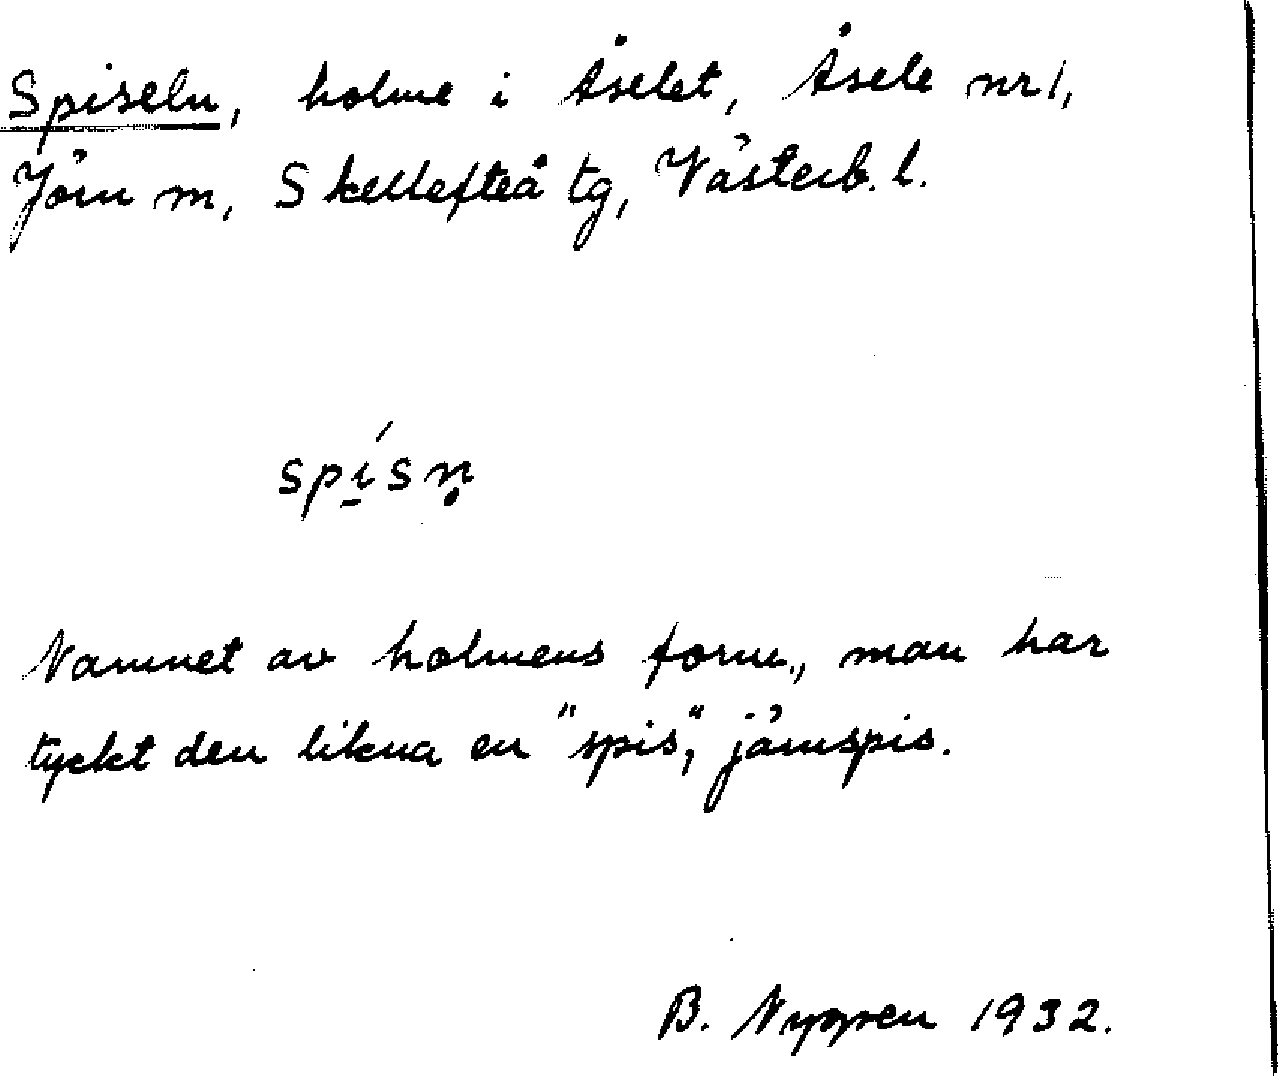 Spiseln, holme i Åselet, Åsele nr 1,
Jörn sn, Skellefteå tg, Västerb. l.
spi̱´sn̥
Namnet av holmens form, man har
tyckt den likna en "spis", järnspis.
B. 1932.